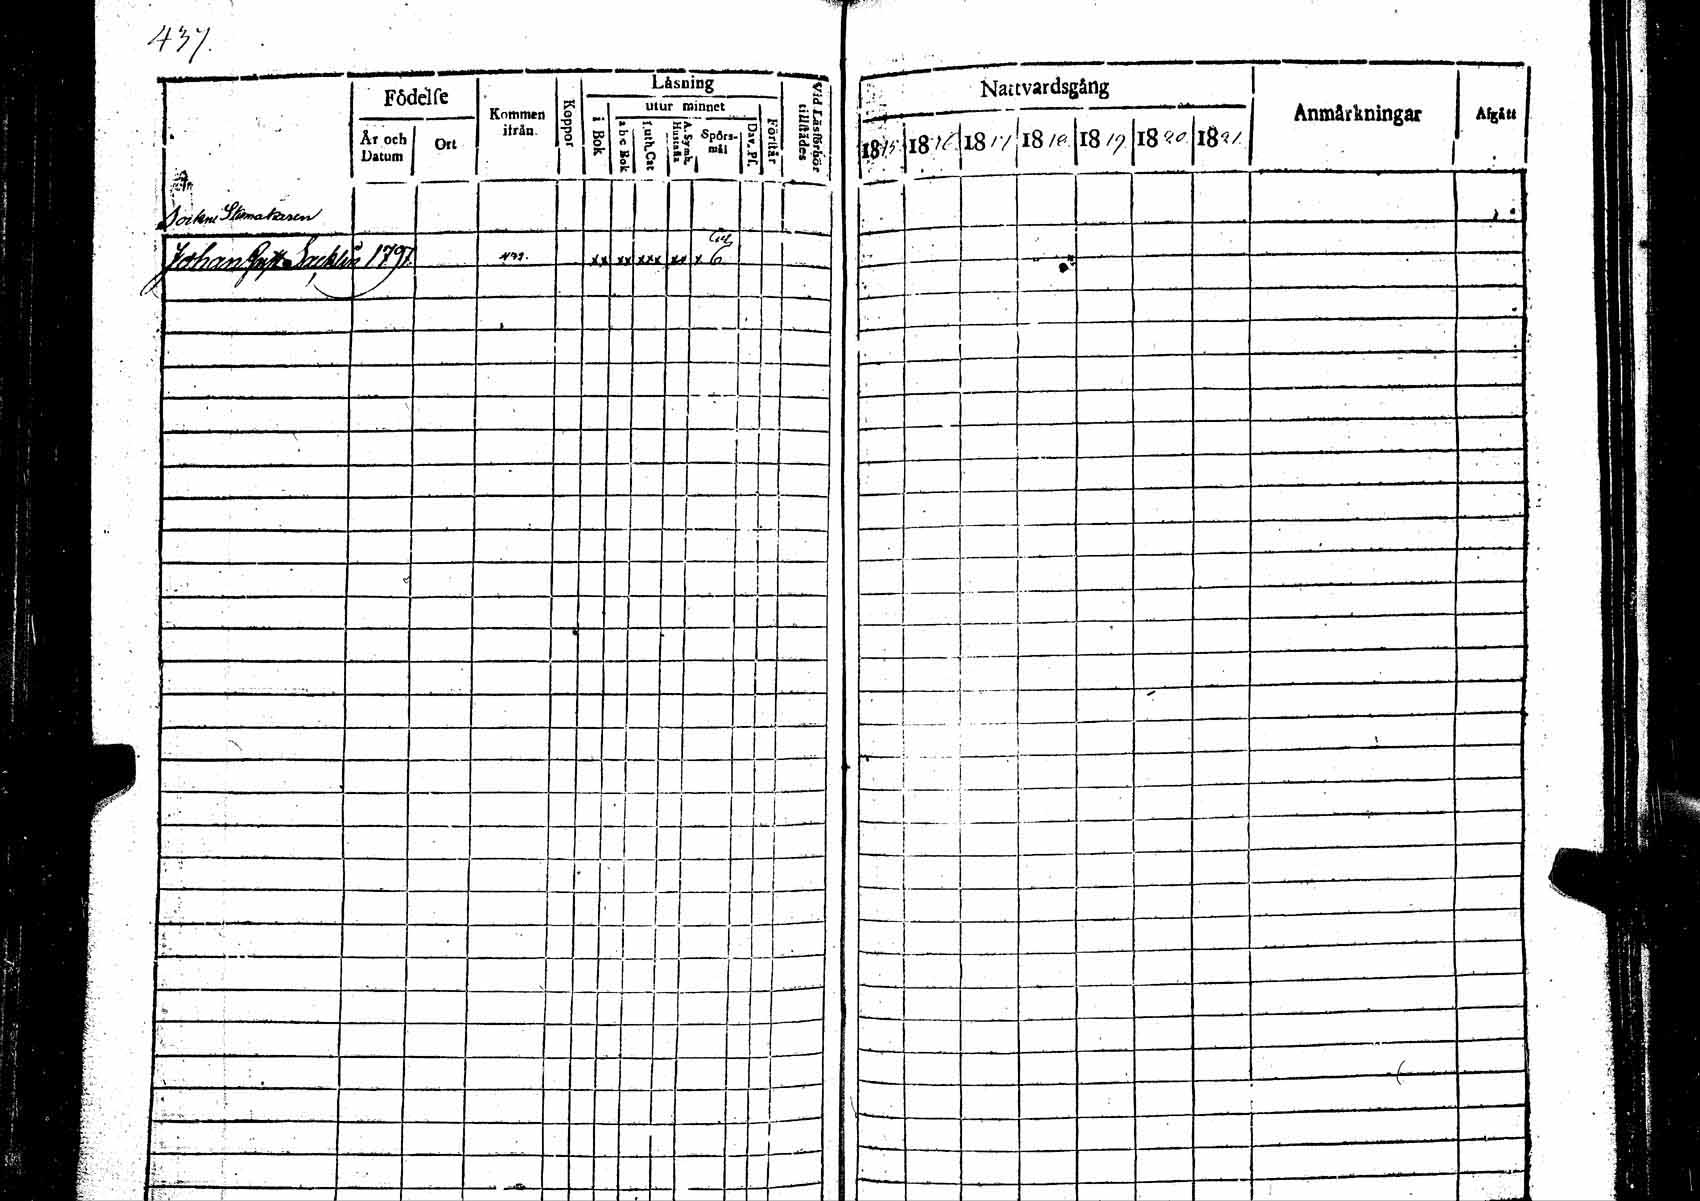 437.
Födelse
År och Datum
Ort
Kommen ifrån.
Koppor
Läsning
i Bok
utur minnet
a b c Bok
Luth. Cat
A. Symb. Hustafla
Spörs-mål
Dav. Ps.
Förstår
Vid Läsförhör tillstädes
Nattvardsgång
1815 1816 1817 1818 1819 1820 1821
Anmärkningar
Afgått
Sockne
Johan 1797
xx xx xxx xx x 6